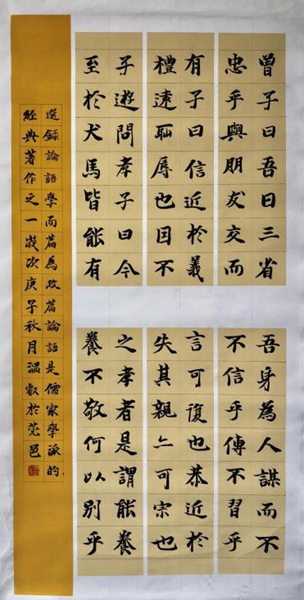 曾子曰吾日三省吾身為人謀而不
忠乎與朋友交而不信乎傳不習乎
有子曰信近於義言可復也恭近於
禮遠耻辱也因不失其親亦可宗也
子遊問孝子曰今之孝者是謂能養
至於犬馬皆能有養不敬何以別乎
選録論語學而篇為政篇論語是儒家學派的
經典著作之一歲次庚子秋月溫於莞邑